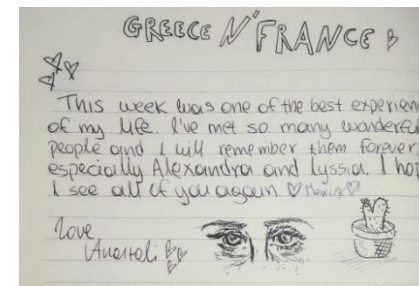 GREECE N' FRANCE
This week was one of the best experien
of my life. I've met so many wonderful
people and I will remember them forever,
especially Alexandra and Lyssia. I hop
I see all of you again
Love